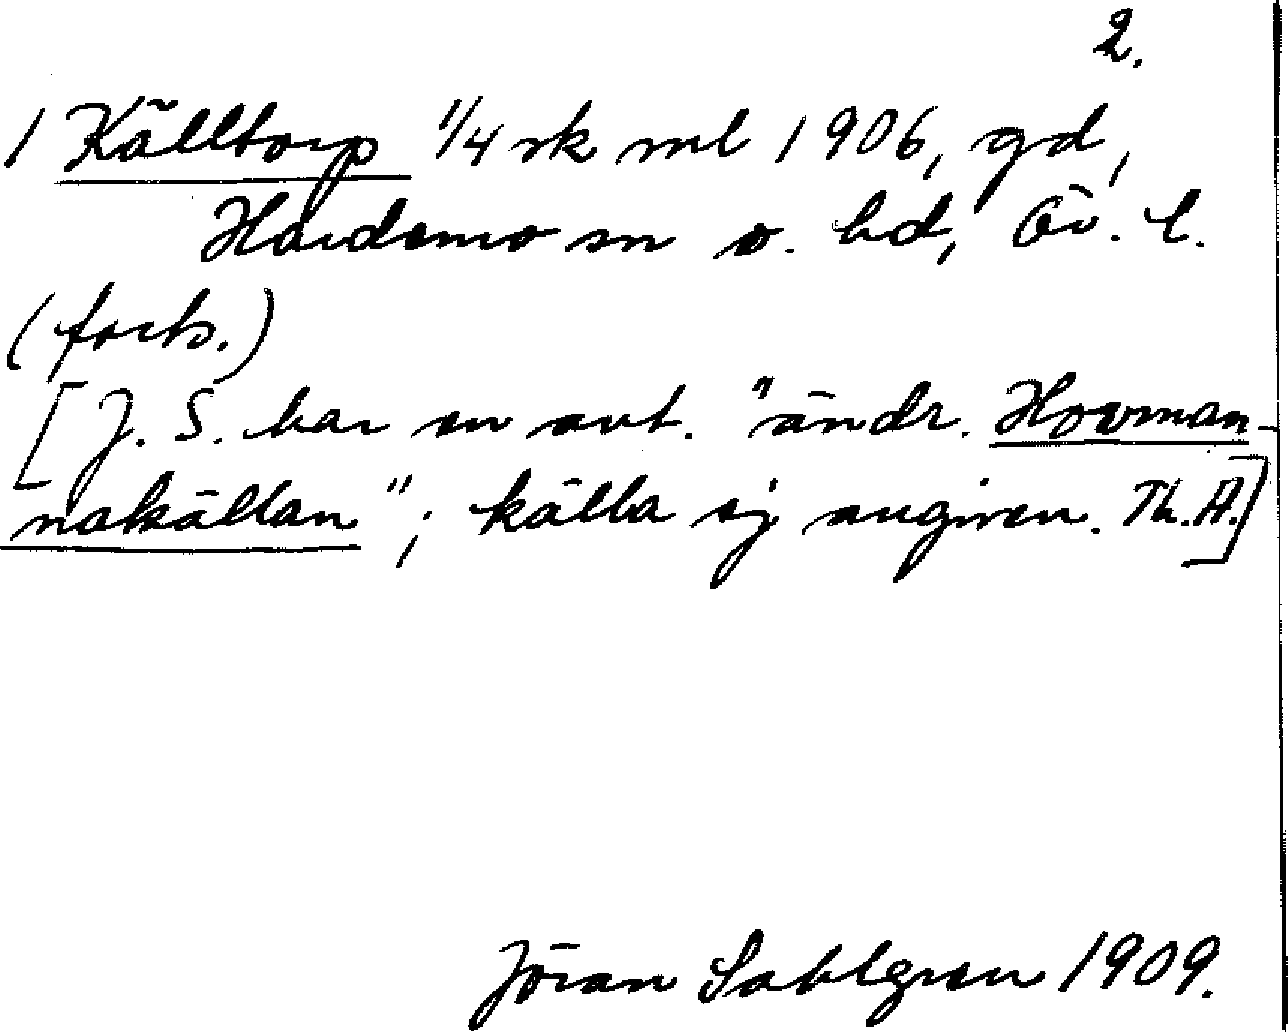 2.
1 Källtorp 1/4 sk ml 1906, gd,
Hardemo sn o. hd, Ör. l.
(forts.)
[J. S. har en ant. "ändr. Hovman-
nakällan"; källa ej angiven. Th. A.]
Jöran Sahlgren 1909.